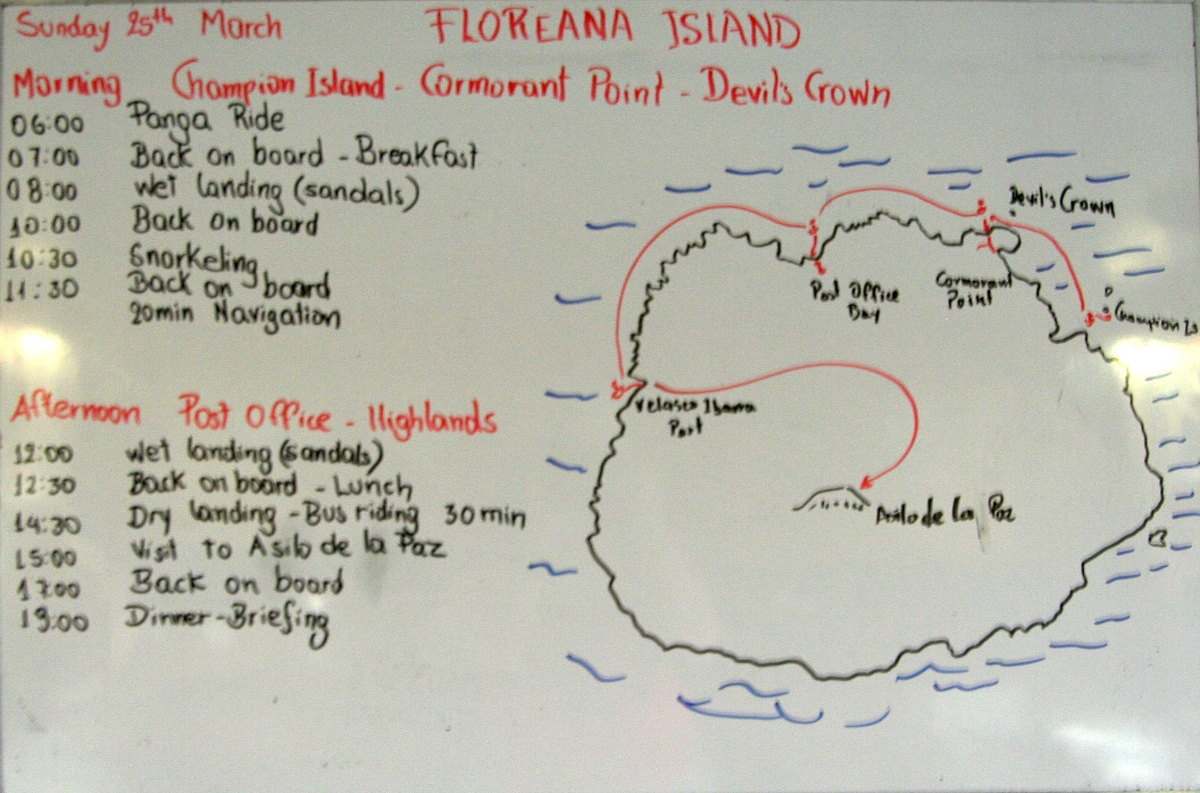 Sunday 25th March FLOREANA ISLAND
Morning Champion Island - Cormorant Point - Devil's Crown
06:00 Panga Ride
07:00 Back on board - Breakfast
08:00 Wet landing (sandals)
10:00 Back on board
10:30 Snorkeling
11:30 Back on board
20min Navigation
Afternoon Post Office - Highlands
12:00 Wet landing (sandals)
12:30 Back on board - Lunch
14:30 Dry landing - Bus riding 30 min
15:00 Visit to Asilo de la Paz
17:00 Back on board
19:00 Dinner - Briefing
Devil's Crown
Post Office
Bay
Cormorant
Point
Champion Is
Velasco Ibarra
Port
Asilo de la Paz